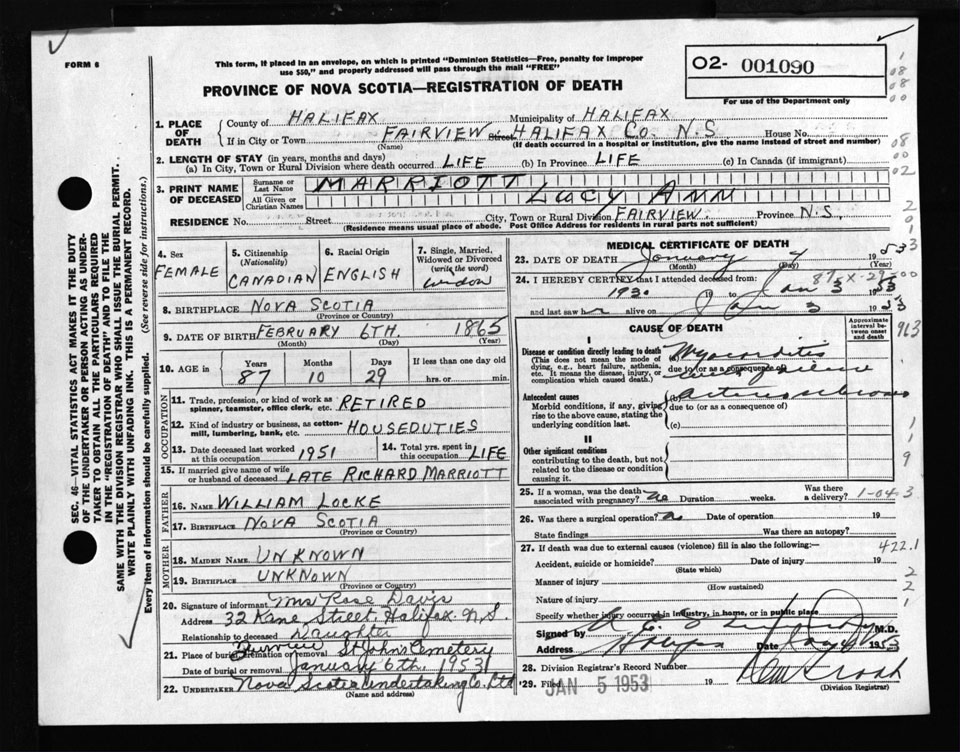 FORM 6
This form, if placed in an envelope, on which is printed "Dominion Statistics—Free, penalty for improper
use $50," and properly addressed will pass through the mail "FREE"
PROVINCE OF NOVA SCOTIA—REGISTRATION OF DEATH
02- 001090
For use of the Department only
1. PLACE OF DEATH
County of HALIFAX Municipality of HALIFAX
If in City or Town FAIRVIEW Street HALIFAX CO. N.S. House No.
(Name) (If death occurred in a hospital or institution, give the name instead of street and number)
2. LENGTH OF STAY (in years, months and days)
(a) In City, Town or Rural Division where death occurred LIFE (b) In Province LIFE (c) In Canada (if immigrant)
3. PRINT NAME OF DECEASED
Surname or Last Name MARRIOTT
All Given or Christian Names LUCY ANN
RESIDENCE No. Street City, Town or Rural Division FAIRVIEW Province N.S.
(Residence means usual place of abode. Post Office Address for residents in rural parts not sufficient)
4. Sex FEMALE
5. Citizenship (Nationality) CANADIAN
6. Racial Origin ENGLISH
7. Single, Married, Widowed or Divorced (write the word) widow
8. BIRTHPLACE NOVA SCOTIA
(Province or Country)
9. DATE OF BIRTH FEBRUARY 6TH. 1865
(Month) (Day) (Year)
10. AGE in Years Months Days If less than one day old
87 10 29 hrs. or min.
OCCUPATION
11. Trade, profession, or kind of work as spinner, teamster, office clerk, etc. RETIRED
12. Kind of industry or business, as cotton-mill, lumbering, bank, etc. HOUSEDUTIES
13. Date deceased last worked at this occupation 1951
14. Total yrs. spent in this occupation LIFE
15. If married give name of wife or husband of deceased LATE RICHARD MARRIOTT
FATHER
16. NAME WILLIAM LOCKE
17. BIRTHPLACE NOVA SCOTIA
(Province or Country)
MOTHER
18. MAIDEN NAME UNKNOWN
19. BIRTHPLACE UNKNOWN
(Province or Country)
20. Signature of informant Mrs Rose Davis
Address 32 Kane Street, Halifax. N.S.
Relationship to deceased Daughter
21. Place of burial, cremation or removal Fairview St John's Cemetery
Date of burial or removal January 6th. 1953
22. UNDERTAKER Nova Scotia Undertaking Co. Ltd
(Name and address)
MEDICAL CERTIFICATE OF DEATH
23. DATE OF DEATH January 4 1953
(Month) (Day) (Year)
24. I HEREBY CERTIFY that I attended deceased from:
1930 to Jan 3 1953
and last saw her alive on Jan 3 1953
CAUSE OF DEATH
Approximate interval between onset and death
I
Disease or condition directly leading to death
(This does not mean the mode of dying, e.g., heart failure, asthenia, etc. It means the disease, injury, or complication which caused death.)
(a) Myocarditis
due to (or as a consequence of)
Antecedent causes
Morbid conditions, if any, giving rise to the above cause, stating the underlying condition last.
(b)
due to (or as a consequence of)
(c)
II
Other significant conditions
contributing to the death, but not related to the disease or condition causing it.
25. If a woman, was the death associated with pregnancy? no Duration weeks. Was there a delivery?
26. Was there a surgical operation? Date of operation 19
State findings Was there an autopsy?
27. If death was due to external causes (violence) fill in also the following:—
Accident, suicide or homicide? Date of injury 19
(State which)
Manner of injury
(How sustained)
Nature of injury
Specify whether injury occurred in industry, in home, or in public place
Signed by M.D.
Address Halifax Date Jan 4 1953
28. Division Registrar's Record Number
29. Filed JAN 5 1953 19
(Division Registrar)
SEC. 46—VITAL STATISTICS ACT MAKES IT THE DUTY
OF THE UNDERTAKER OR PERSON ACTING AS UNDER-
TAKER TO OBTAIN ALL THE PARTICULARS REQUIRED
IN THE "REGISTRATION OF DEATH" AND TO FILE THE
SAME WITH THE DIVISION REGISTRAR WHO SHALL ISSUE THE BURIAL PERMIT.
WRITE PLAINLY WITH UNFADING INK. THIS IS A PERMANENT RECORD.
Every item of information should be carefully supplied. (See reverse side for instructions.)
963
1-04 3
422.1